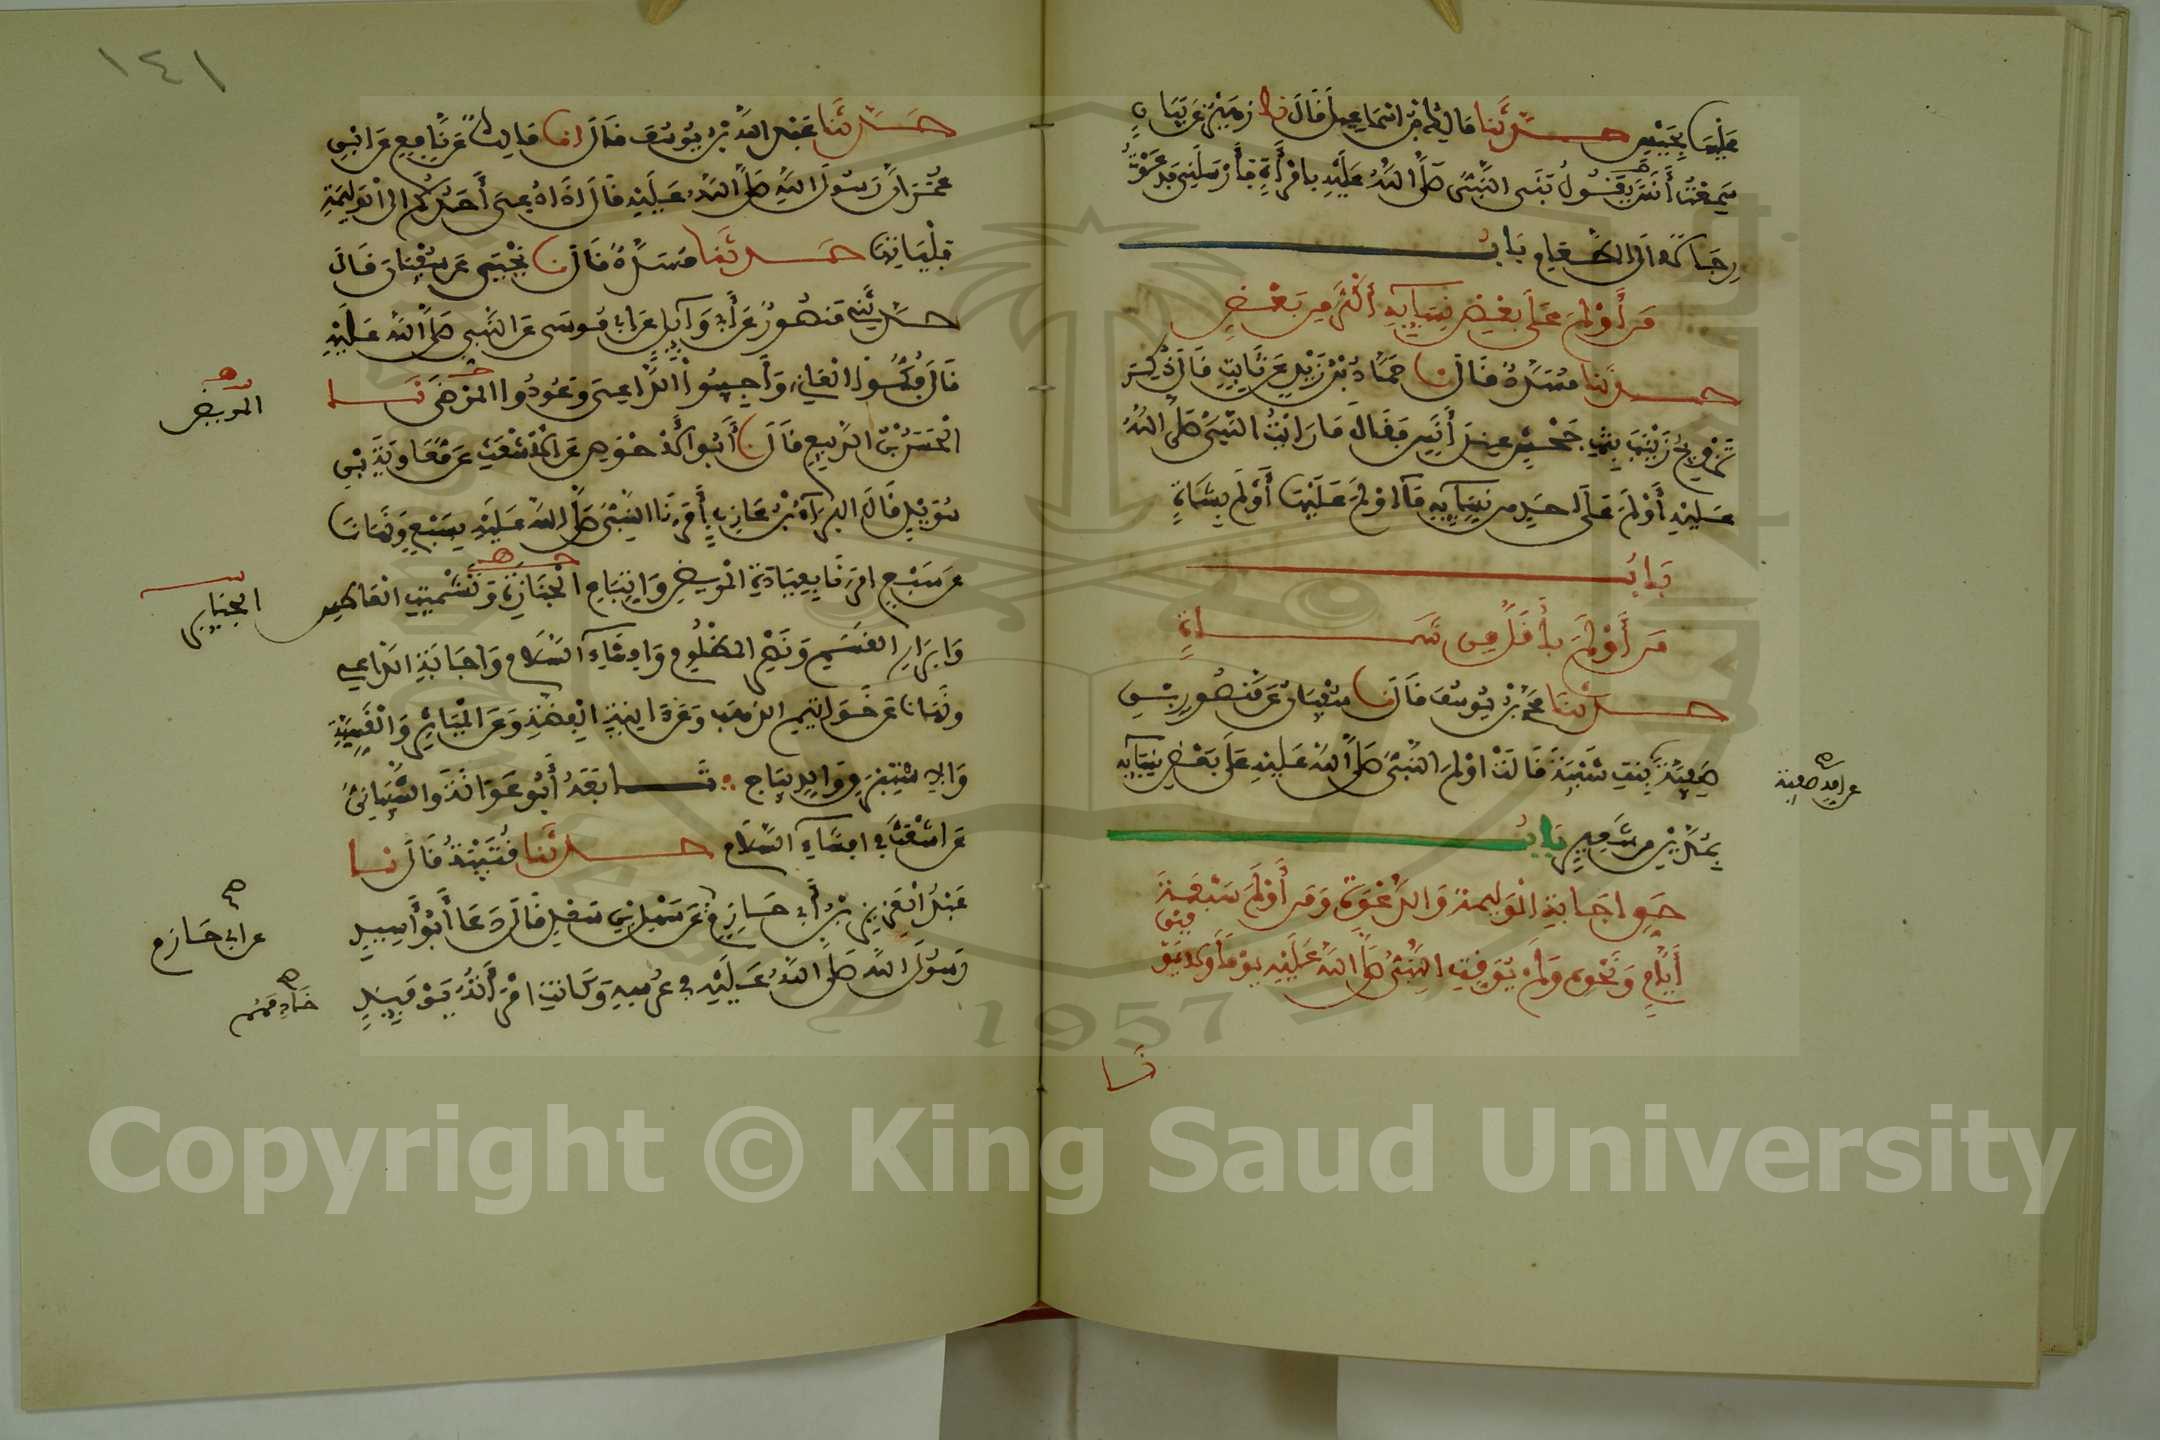 عليها بحيس حدثنا مالك بن اسماعيل قال نا زهير عن بيان
سمعت أنس يقول بنى النبي صلى الله عليه بامرأة فأرسلني فدعوت
رجالا الى الطعام باب
من أولم على بعض نسايه أكثر من بعض
حدثنا مسدد قال نا حماد بن زيد عن ثابت قال ذكر
تزويج زينب بنت جحش عند أنس فقال ما رايت النبي صلى الله
عليه أولم على احد من نسايه ما اولم عليها أولم بشاة
باب
من أولم بأقل من شاة
حدثنا محمد بن يوسف قال نا سفيان عن منصور بن
صفية بنت شيبة قالت اولم النبي صلى الله عليه على بعض نسايه
عن امه صفية
بمدين من شعير باب
حق اجابة الوليمة والدعوة ومن أولم سبعة
أيام ونحوه ولم يوقت النبي صلى الله عليه يوما ولا يومين
نا
١٤١
حدثنا عبد الله بن يوسف قال انا مالك عن نافع عن ابن
عمر ان رسول الله صلى الله عليه قال اذا دعي أحدكم الى الوليمة
فلياتها حدثنا مسدد قال نا يحيى عن سفيان قال
حدثني منصور عن أبي وايل عن ابي موسى عن النبي صلى الله عليه
قال فكوا العاني وأجيبوا الداعي وعودوا المرضى نا
المريض
الحسن بن الربيع قال نا أبوا لأحوص عن الأشعث عن معاوية بن
سويد قال البراء بن عازب أمرنا النبي صلى الله عليه بسبع ونهانا
عن سبع امرنا بعيادة المريض واتباع الجنازة وتشميت العاطس
الجنايز
وابرار القسم ونصر المظلوم وافشاء السلام واجابة الداعي
ونهانا عن خواتيم الذهب وعن انية الفضة وعن المياثر والقسية
والاستبرق والديباج تابعه أبو عوانة والشيباني
عن اشعث في افشاء السلام حدثنا قتيبة قال نا
عبد العزيز بن أبي حازم عن سهل بن سعد قال دعا أبو أسيد
عن ابي حازم
رسول الله صلى الله عليه في عرسه وكانت امرأته يومئذ
خادمهم
Copyright © King Saud University
1957